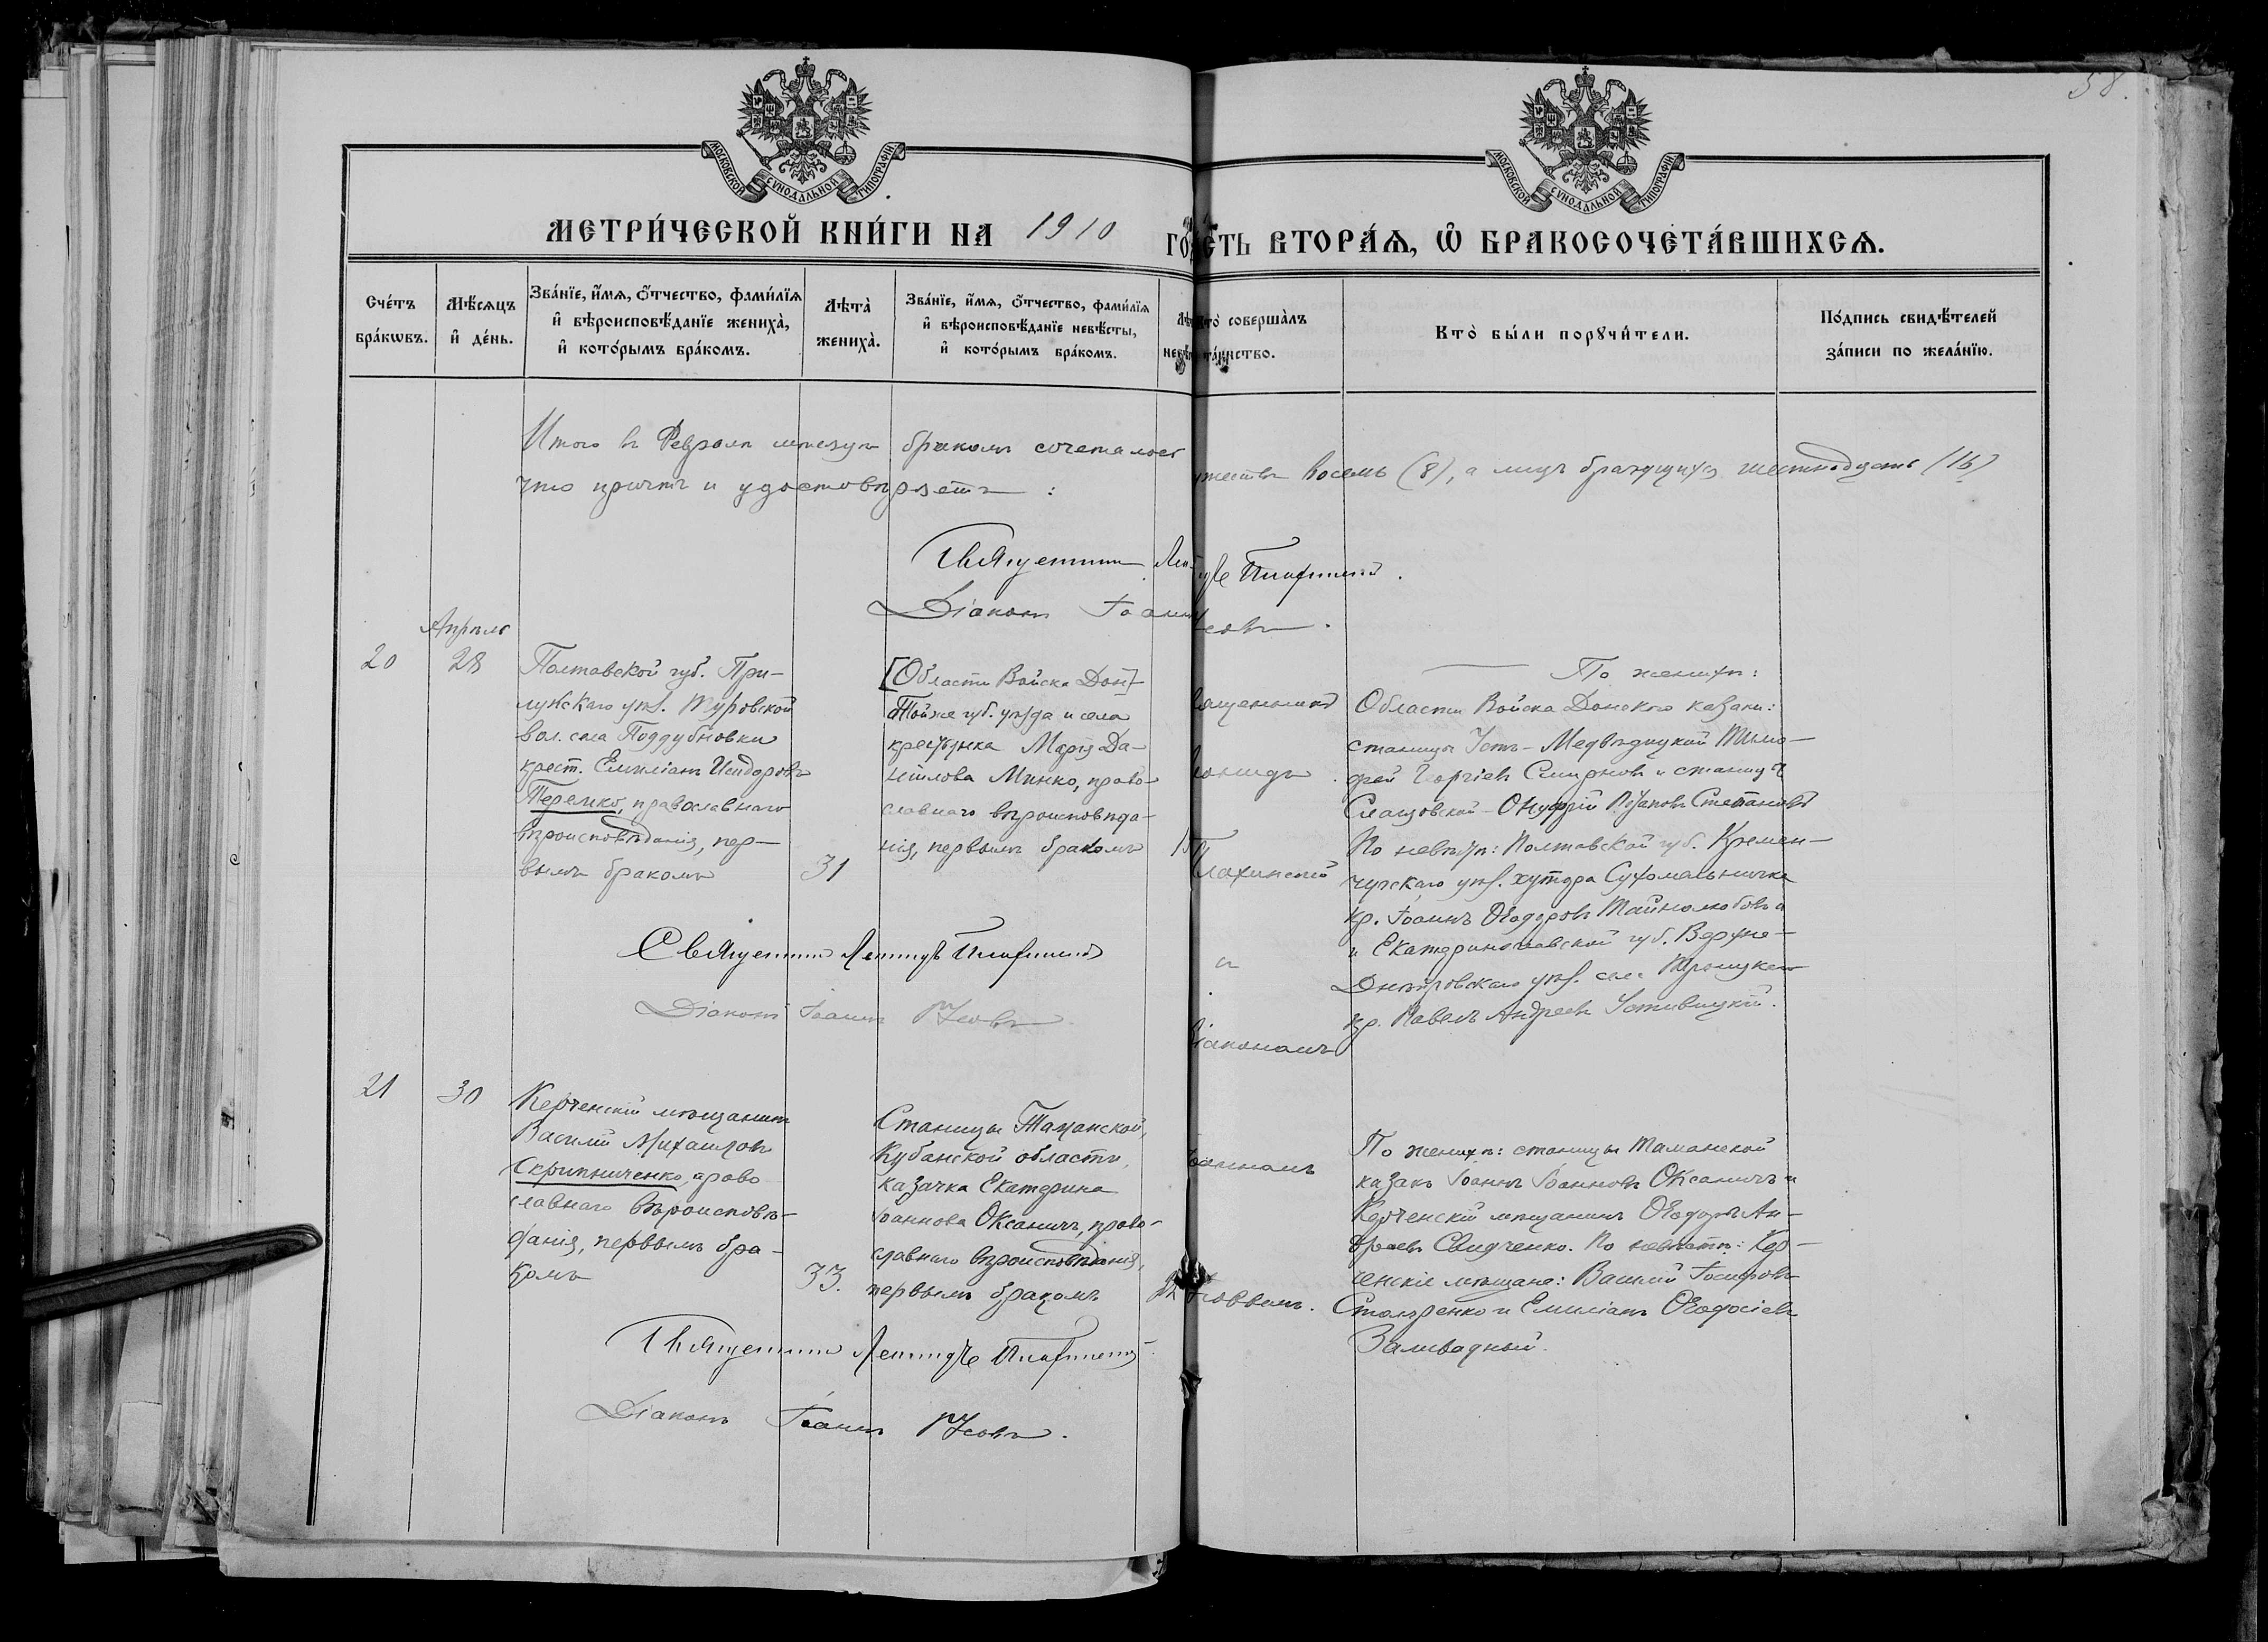 58.
МОСКОВСКОЙ СѴНОДАЛЬНОЙ ТИПОГРАФІИ
МОСКОВСКОЙ СѴНОДАЛЬНОЙ ТИПОГРАФІИ
МЕТРИ́ЧЕСКОЙ КНИ́ГИ НА 1910 ГО
СТЬ ВТОРА́Я, Ѡ БРАКОСОЧЕТА́ВШИХСЯ.
Сче́тъ
бра́кѡвъ.
Мѣ́сяцъ
и де́нь.
Зва́нїе, и́мя, ѻ́тчество, фами́лїя
и вѣроисповѣ́данїе жениха̀,
и кото́рымъ бра́комъ.
Лѣта̀
жениха̀.
Зва́нїе, и́мя, ѻ́тчество, фами́лїя
и вѣроисповѣ́данїе невѣ́сты,
и кото́рымъ бра́комъ.
Кто̀ соверша̀лъ
та́инство.
Кто̀ бы́ли порꙋчи́тели.
По́дпись свидѣ́телей
за́писи по жела́нїю.
Итого въ Февралѣ мѣсяцѣ бракомъ сочеталось
жествъ восемь (8), а лицъ брачущихся шестнадцать (16)
что причтъ и удостовѣряетъ:
Священникъ Леонидъ Плахинскій.
Діаконъ Іоаннъ Усовъ.
Апрѣль
20
28
Полтавской губ. При-
лукскаго уѣз. Туровской
вол. села Поддубновки
крест. Емиліанъ Исидоровъ
Теремко, православнаго
вѣроисповѣданія, пер-
вымъ бракомъ
31
[Области Войска Дон]
Той же губ. уѣзда и села
крестьянка Марія Да-
ніилова Минко, право-
славнаго вѣроисповѣда-
нія, первымъ бракомъ
Священникъ
Леонидъ
Плахинскій
и
Діакономъ
По женихѣ:
Области Войска Донского казаки:
станицы Усть-Медвѣдицкой Тимо-
фей Георгіевъ Смирновъ и станицы
Слащовской - Онуфрій Степановъ
По невѣстѣ: Полтавской губ. Кремен-
чугскаго уѣз. хутора Сухомаьничка
кр. Іоаннъ Ѳеодоровъ
и Екатеринославской губ. Верхне-
Днѣпровскаго уѣз. села Троицкаго
кр. Павелъ Андреевъ Устивицкій.
Священникъ Леонидъ Плахинскій
Діаконъ Іоаннъ Усовъ
21
30
Керченскій мѣщанинъ
Василій Михаиловъ
Скрипниченко, право
славнаго вѣроисповѣ-
данія, первымъ бра-
комъ
33.
Станицы Таманской,
Кубанской области,
казачка Екатерина
Іоаннова Оксаничъ, право-
славнаго вѣроисповѣданія,
первымъ бракомъ
Іоанномъ
Усовымъ.
По женихѣ: станицы Таманской
казакъ Іоаннъ Іоанновъ Оксаничъ и
Керченскій мѣщанинъ Ѳеодоръ Ан-
дреевъ Свидченко. По невѣстѣ: Кер-
ченскіе мѣщане: Василій Іосифовъ
Столяренко и Емиліанъ Ѳеодосіевъ
Заливадный.
Священникъ Леонидъ Плахинскій
Діаконъ Іоаннъ Усовъ.